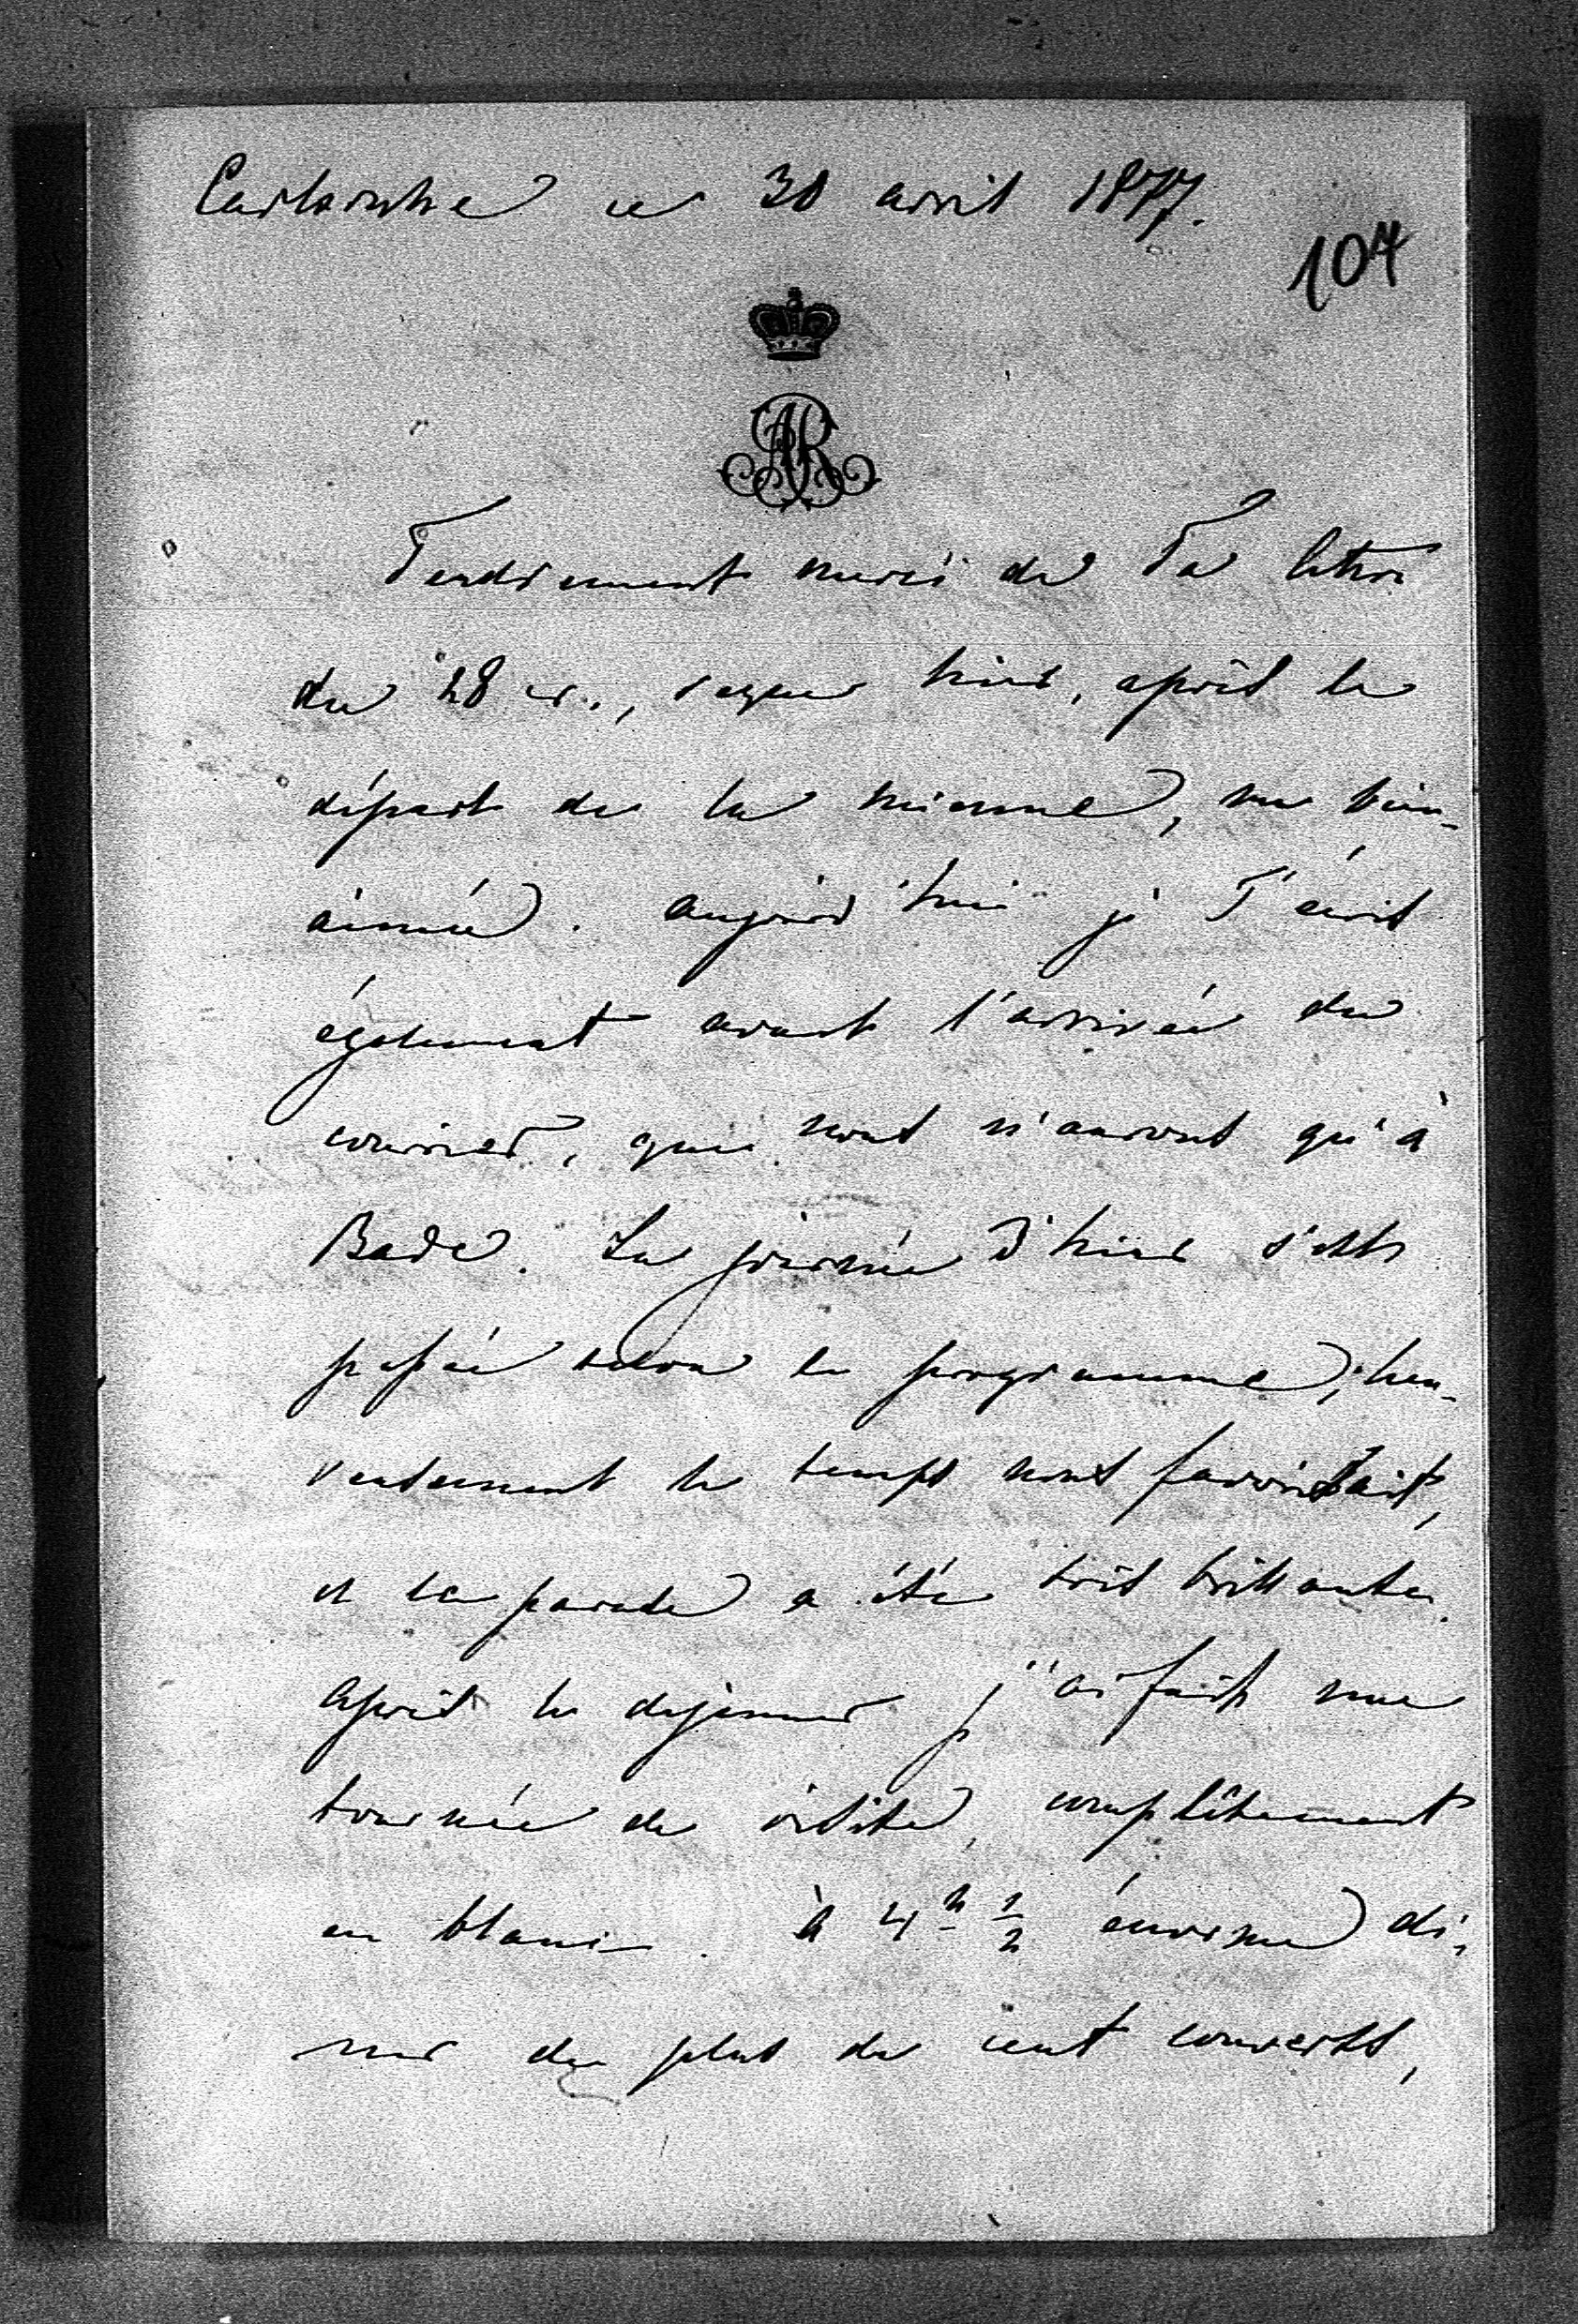 Carlsruhe ce 30 avril 1877.
104
AR
Tendrement merci de Ta lettre
du 28 cr., reçue hier, après le
départ de la mienne, ma bien-
aimée. Aujourd'hui je T'écris
également avant l'arrivée du
courrier, que nous n'aurons qu'à
Bade. La journée d'hier s'est
passée selon le programme; heu-
reusement le temps nous favorisait,
et la parade a été très brillante.
Après le dejeuner j'ai fait une
tournée de visites, complètement
en blanc. À 4 h 1/2 énorme di-
ner de plus de cent couverts,